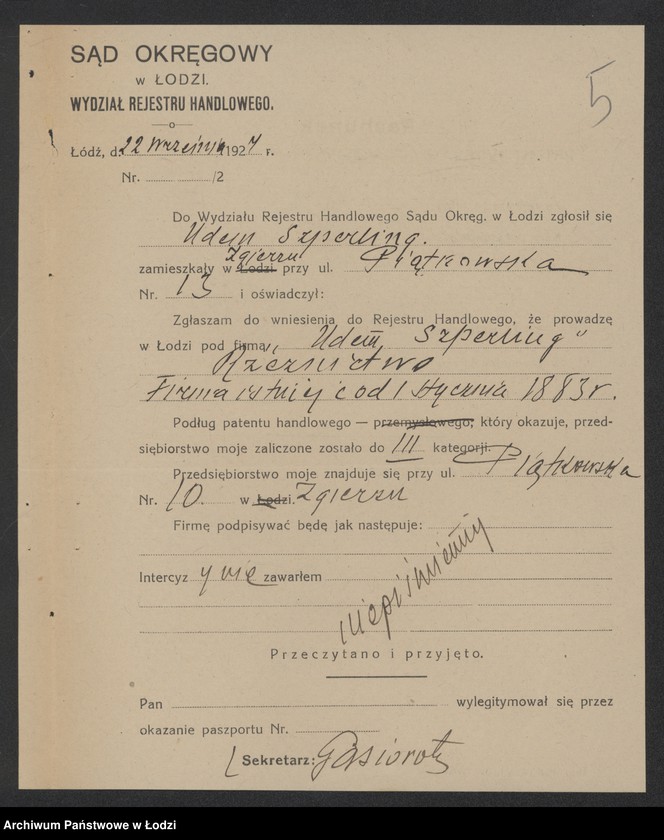 SĄD OKRĘGOWY
w ŁODZI.
WYDZIAŁ REJESTRU HANDLOWEGO.
5
Łódź, d. 22 Września 1927 r.
Nr. /2
Do Wydziału Rejestru Handlowego Sądu Okręg. w Łodzi zgłosił się
Udem Szperling.
Zgierzu
zamieszkały w Łodzi przy ul. Piątkowska
Nr. 13 i oświadczył:
Zgłaszam do wniesienia do Rejestru Handlowego, że prowadzę
w Łodzi pod firmą „Udem Szperling"
Rzeźnictwo
Firma istnieje od 1 stycznia 1883 r.
Podług patentu handlowego — przemysłowego, który okazuje, przed-
siębiorstwo moje zaliczone zostało do III kategorji.
Przedsiębiorstwo moje znajduje się przy ul. Piątkowska
Nr. 10. w Łodzi. Zgierzu
Firmę podpisywać będę jak następuje:
niepiśmienny
Intercyzy nie zawarłem
Przeczytano i przyjęto.
Pan wylegitymował się przez
okazanie paszportu Nr.
Sekretarz:
Archiwum Państwowe w Łodzi